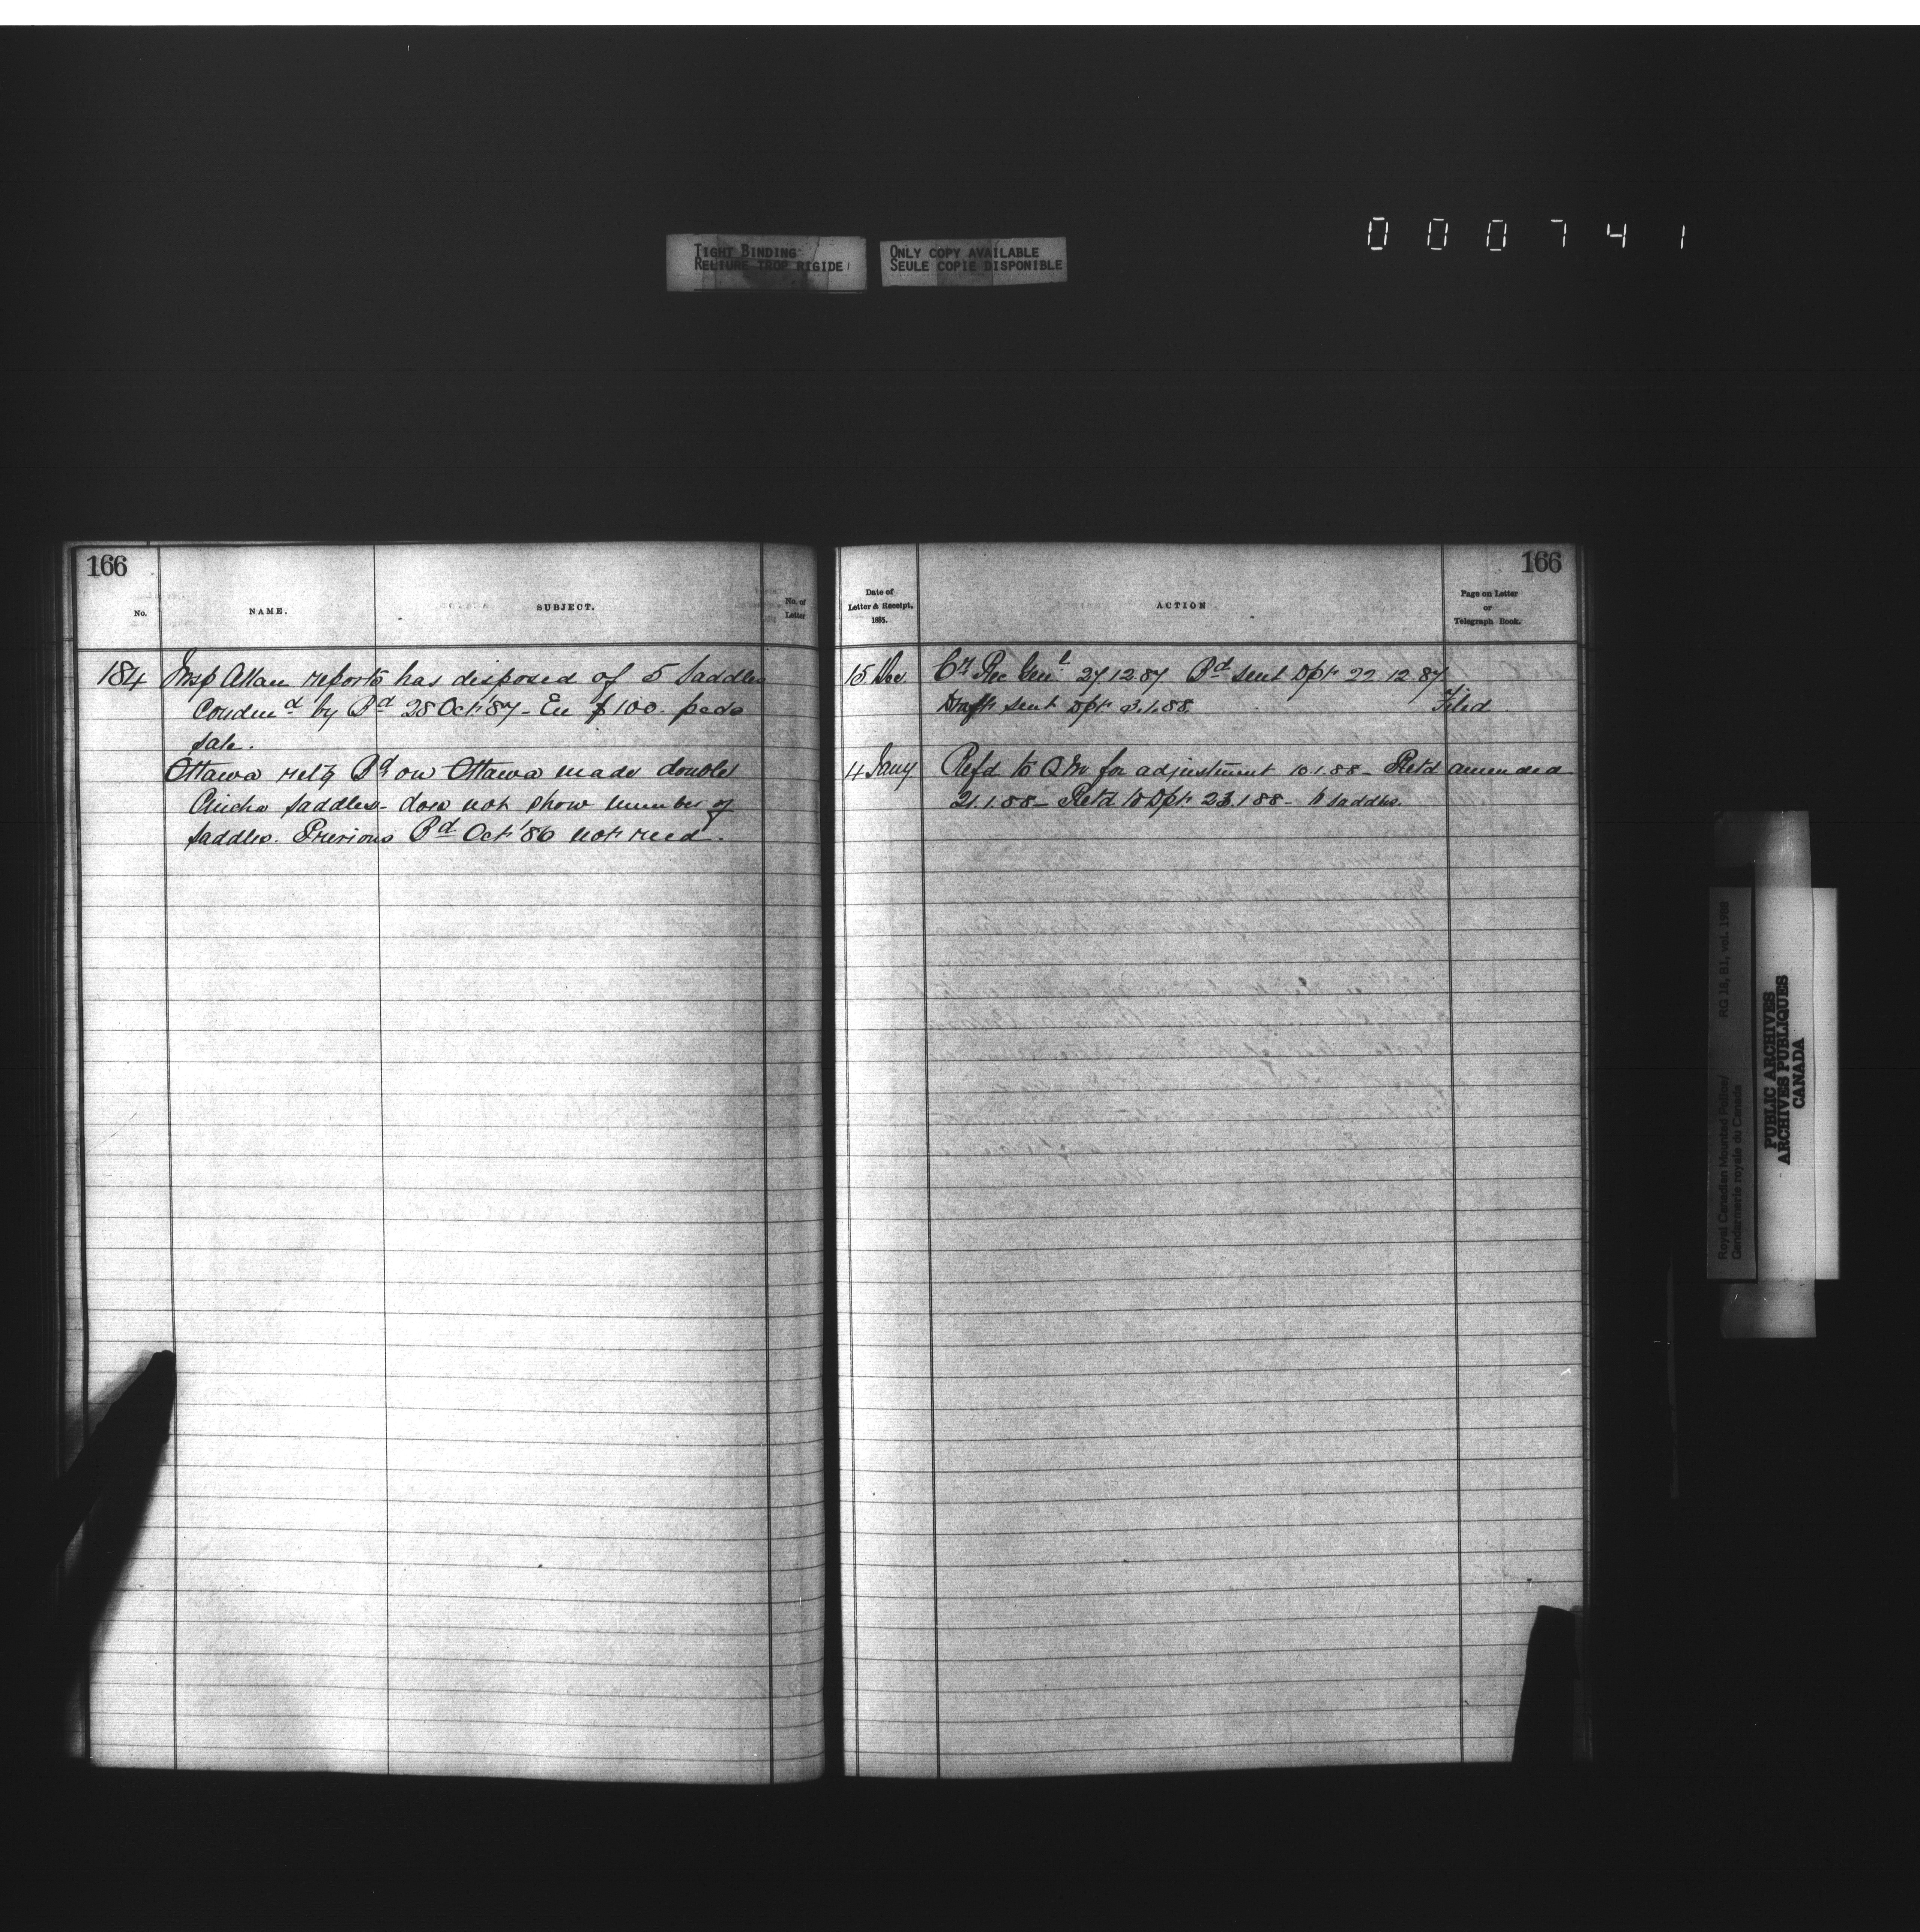 000741
TIGHT BINDING
RELIURE TROP RIGIDE
ONLY COPY AVAILABLE
SEULE COPIE DISPONIBLE
166
No.
NAME.
SUBJECT.
No. of
Letter
184 Insp Allan reports has disposed of 5 Saddles
Condemd by Bd 28 Oct '87 - En $100. peds
sale.
Ottawa retg Bd on Ottawa made double
Cincha saddles - does not show number of
saddles. Previous Bd Oct '86 not recd.
166
Date of
Letter & Receipt,
1885.
ACTION
Page on Letter
or
Telegraph Book.
15 Dec. Cr Rec Genl 27.12.87 Bd sent Dpt 22.12.87
Draft sent Dpt 3.1.88. Filed
4 Jany Refd to QM for adjustment 10.1.88 - Retd amended
21.1.88 - Retd to Dpt 23.1.88 - saddles.
Royal Canadian Mounted Police/
Gendarmerie royale du Canada
RG 18, B1, vol. 1988
PUBLIC ARCHIVES
ARCHIVES PUBLIQUES
CANADA